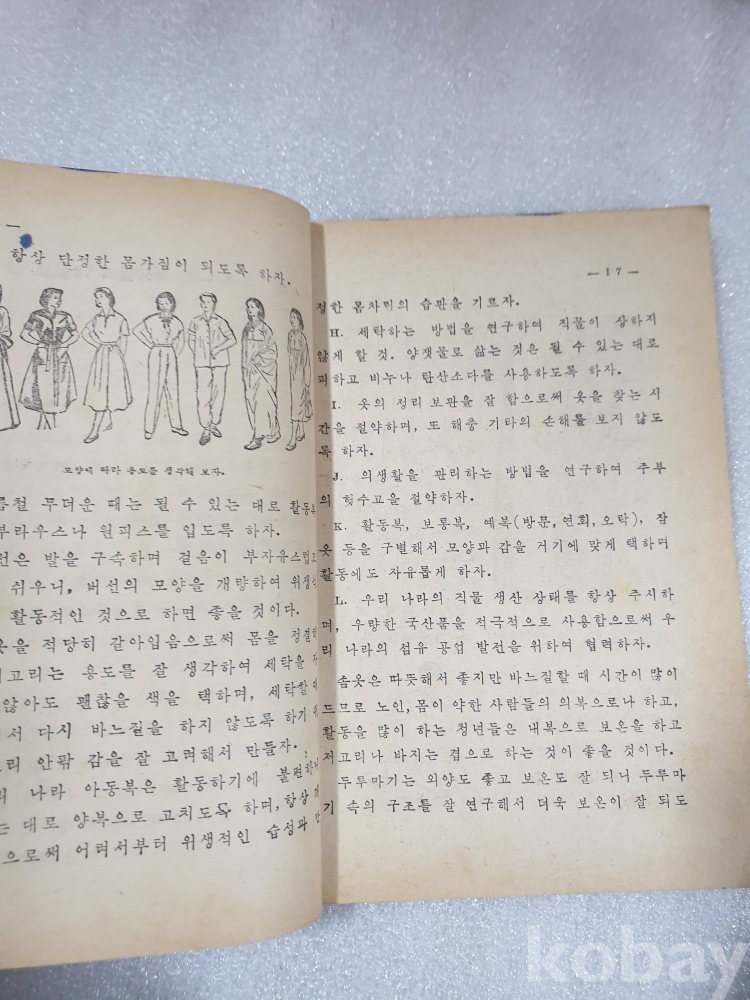 항상 단정한 몸가짐이 되도록 하자.
모양에 따라 용도를 생각해 보자.
무더운 때는 될 수 있는 대로 활동복
부라우스나 원피스를 입도록 하자.
발을 구속하며 걸음이 부자유스럽고
쉬우니, 버선의 모양을 개량하여 위생적
활동적인 것으로 하면 좋을 것이다.
적당히 갈아입음으로써 몸을 정결히
용도를 잘 생각하여 세탁을
않아도 괜찮을 색을 택하며, 세탁할 때
서 다시 바느질을 하지 않도록 하기
안팎 감을 잘 고려해서 만들자.
나라 아동복은 활동하기에 불편하니
는 대로 양복으로 고치도록 하며, 항상
으로써 어려서부터 위생적인 습성과
— 17 —
정한 몸차림의 습관을 기르자.
H. 세탁하는 방법을 연구하여 직물이 상하지
않게 할 것. 양잿물로 삶는 것은 될 수 있는 대로
피하고 비누나 탄산소다를 사용하도록 하자.
I. 옷의 정리 보관을 잘 함으로써 옷을 찾는 시
간을 절약하며, 또 해충 기타의 손해를 보지 않도
록 하자.
J. 의생활을 관리하는 방법을 연구하여 주부
의 헛수고을 절약하자.
K. 활동복, 보통복, 예복(방문, 연회, 오락), 잠
옷 등을 구별해서 모양과 감을 거기에 맞게 택하며
활동에도 자유롭게 하자.
L. 우리 나라의 직물 생산 상태를 항상 주시하
며, 우량한 국산품을 적극적으로 사용함으로써 우
리 나라의 섬유 공업 발전을 위하여 협력하자.
솜옷은 따뜻해서 좋지만 바느질할 때 시간이 많이
드므로 노인, 몸이 약한 사람들의 의복으로나 하고,
활동을 많이 하는 청년들은 내복으로 보온을 하고
저고리나 바지는 겹으로 하는 것이 좋을 것이다.
두투마기는 외양도 좋고 보온도 잘 되니 두루마
기 속의 구조를 잘 연구해서 더욱 보온이 잘 되도
kobay